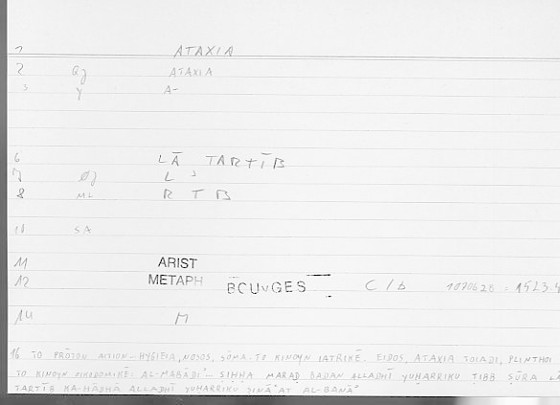 1 ATAXIA
2 ATAXIA
3 A-
6 LĀ TARTĪB
7 L
8 ML R T B
11 SA
11 ARIST
12 METAPH BOUYGES C/b 1070b28 = 1523.4
14 M
16 TO PRŌTON AITION – HYGIEIA, NOSOS, SŌMA. TO KINOYN IATRIKĒ. EIDOS, ATAXIA TOIADI, PLINTHOI
TO KINOYN OIKODOMIKĒ. AL-MABĀDI' – SIHHA MARAD BADAN ALLADHĪ YUHARRIKU TIBB SŪRA LĀ
TARTĪB KA-HĀDHĀ ALLADHĪ YUHARRIKU SINĀ'AT AL-BANĀ'